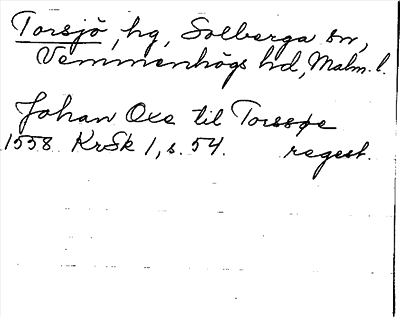 Torsjö, hg, Solberga sn,
Vemmenhögs hd, Malm. l.
Johan Oxe til Torssøe
1558. KrSk 1, s. 54. regest.